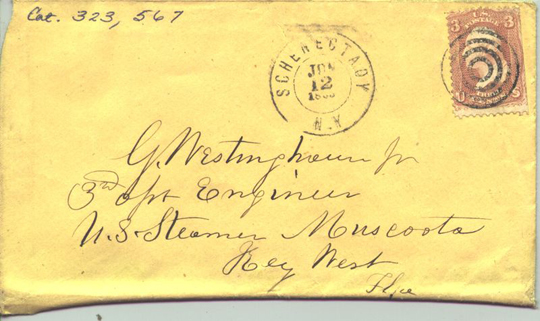 Cat. 323,567
SCHENECTADY
JUN
12
N.Y
3 3
U.S.
POSTAGE
G. Westinghouse Jr
3rd Asst Engineer
U.S. Steamer Muscoota
Key West
Fla